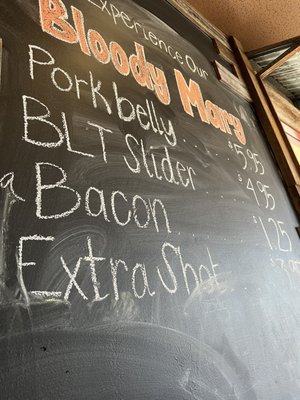 Experience Our
Bloody Mary
Porkbelly . . $5.95
BLT Slider . . $4.95
a Bacon . . . $1.25
Extra Shot